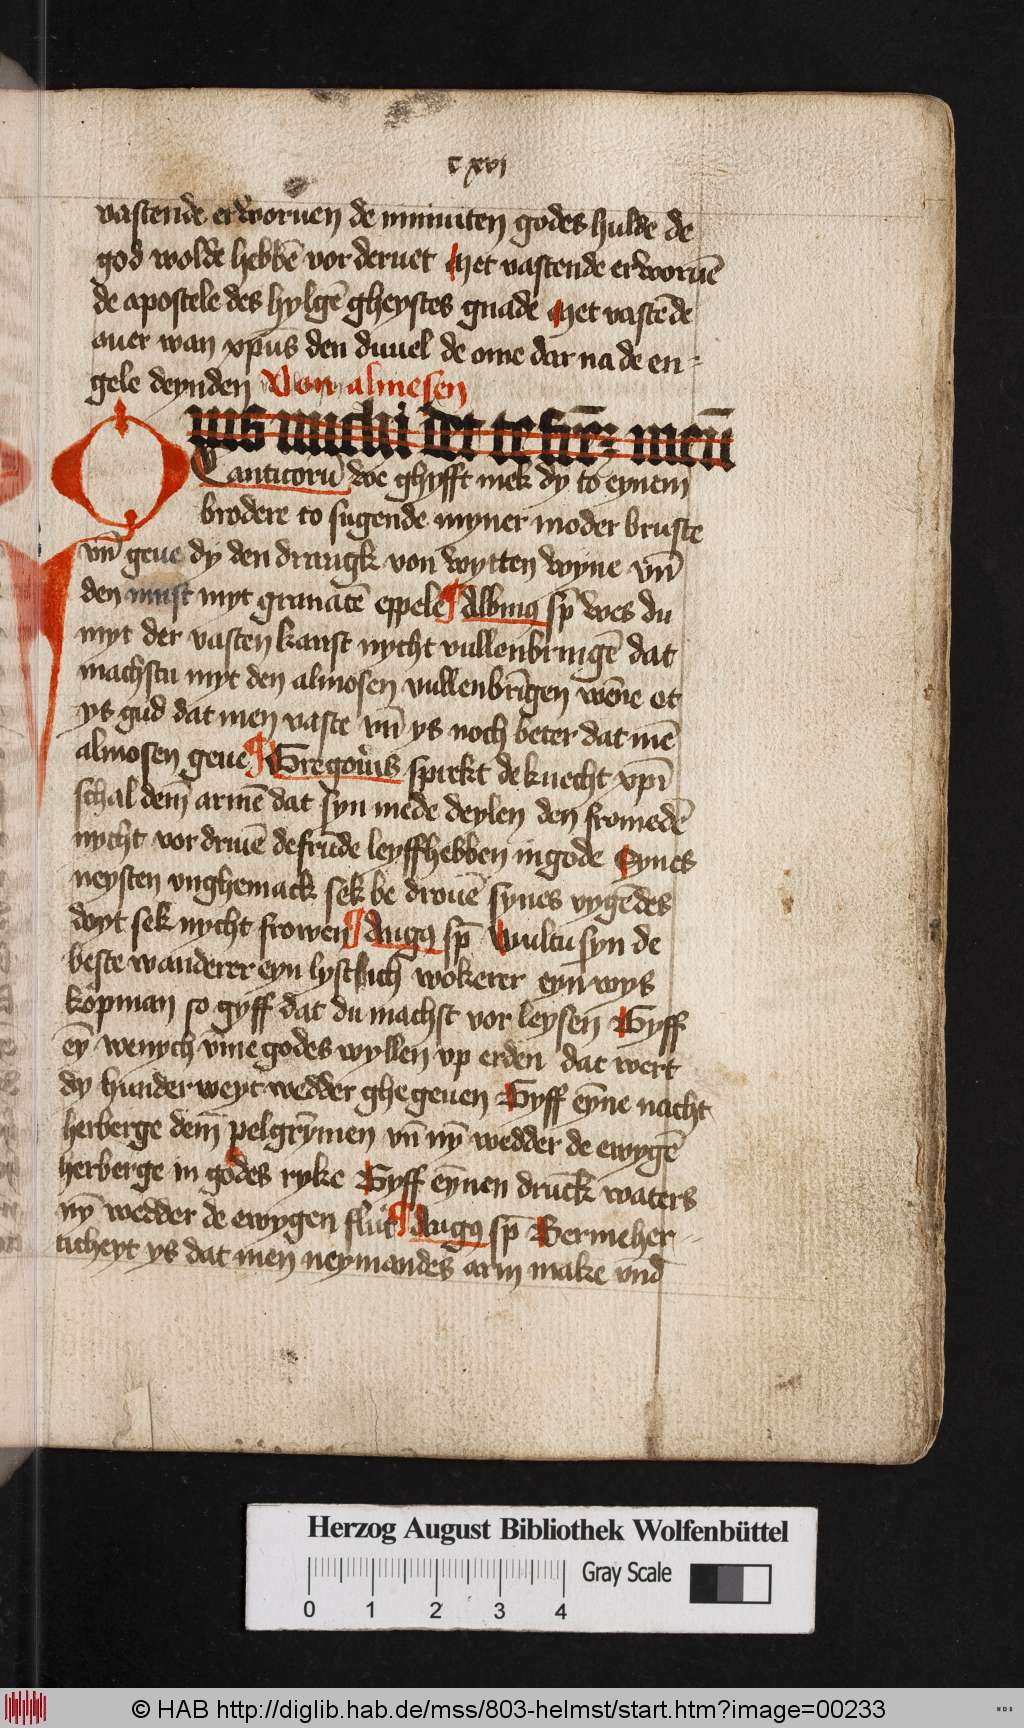 c xvi
vastende erworuen de niniuiten godes hulde de
god wolde hebbē vor deruet Met vastende erworuē
de apostele des hylgē gheystes gnade Met vastēde
ouer wan xpūs den duuel de ome dar na de en=
gele deynden Von almesen
Quis michi det te frēm meū
Canticorū we ghyfft mek dy to eynem
brodere to sugende myner moder bruste
vn̄ geue dy den drangk von wytten wyne vn̄
den must myt granatē eppele Albinus sp̄ wes du
myt der vasten kanst nycht vullenbringē dat
machstu myt den almosen vullenbrīgen wēne et
ys gud dat men vaste vn̄ ys noch beter dat mē
almosen geue Gregorius sprekt de knecht xpī
schal dem armē dat syn mede deylen den fromedē
nycht vor druē de frūde leyff hebben in gode Synes
neysten vnghemack sek be drouē synes vygēdes
doyt sek nycht frowen Augꝯ sp̄ Wultu syn de
beste wanderer eyn lystlich wokerer eyn wys
kopman so gyff dat du machst vor leysen Gyff
eȳ wenych vme godes wyllen vp erden dat wert
dy hunder weyt wedder ghe geuen Gyff eȳne nacht
herberge dem pelgrȳmen vn̄ nȳ wedder de ewygē
herberge in godes ryke Gyff eȳnen druck waters
nȳ wedder de ewygen flut Augꝯ sp̄ Bermeher
ticheyt ys dat men neymandes arm make vnd
Herzog August Bibliothek Wolfenbüttel
Gray Scale
0 1 2 3 4
© HAB http://diglib.hab.de/mss/803-helmst/start.htm?image=00233